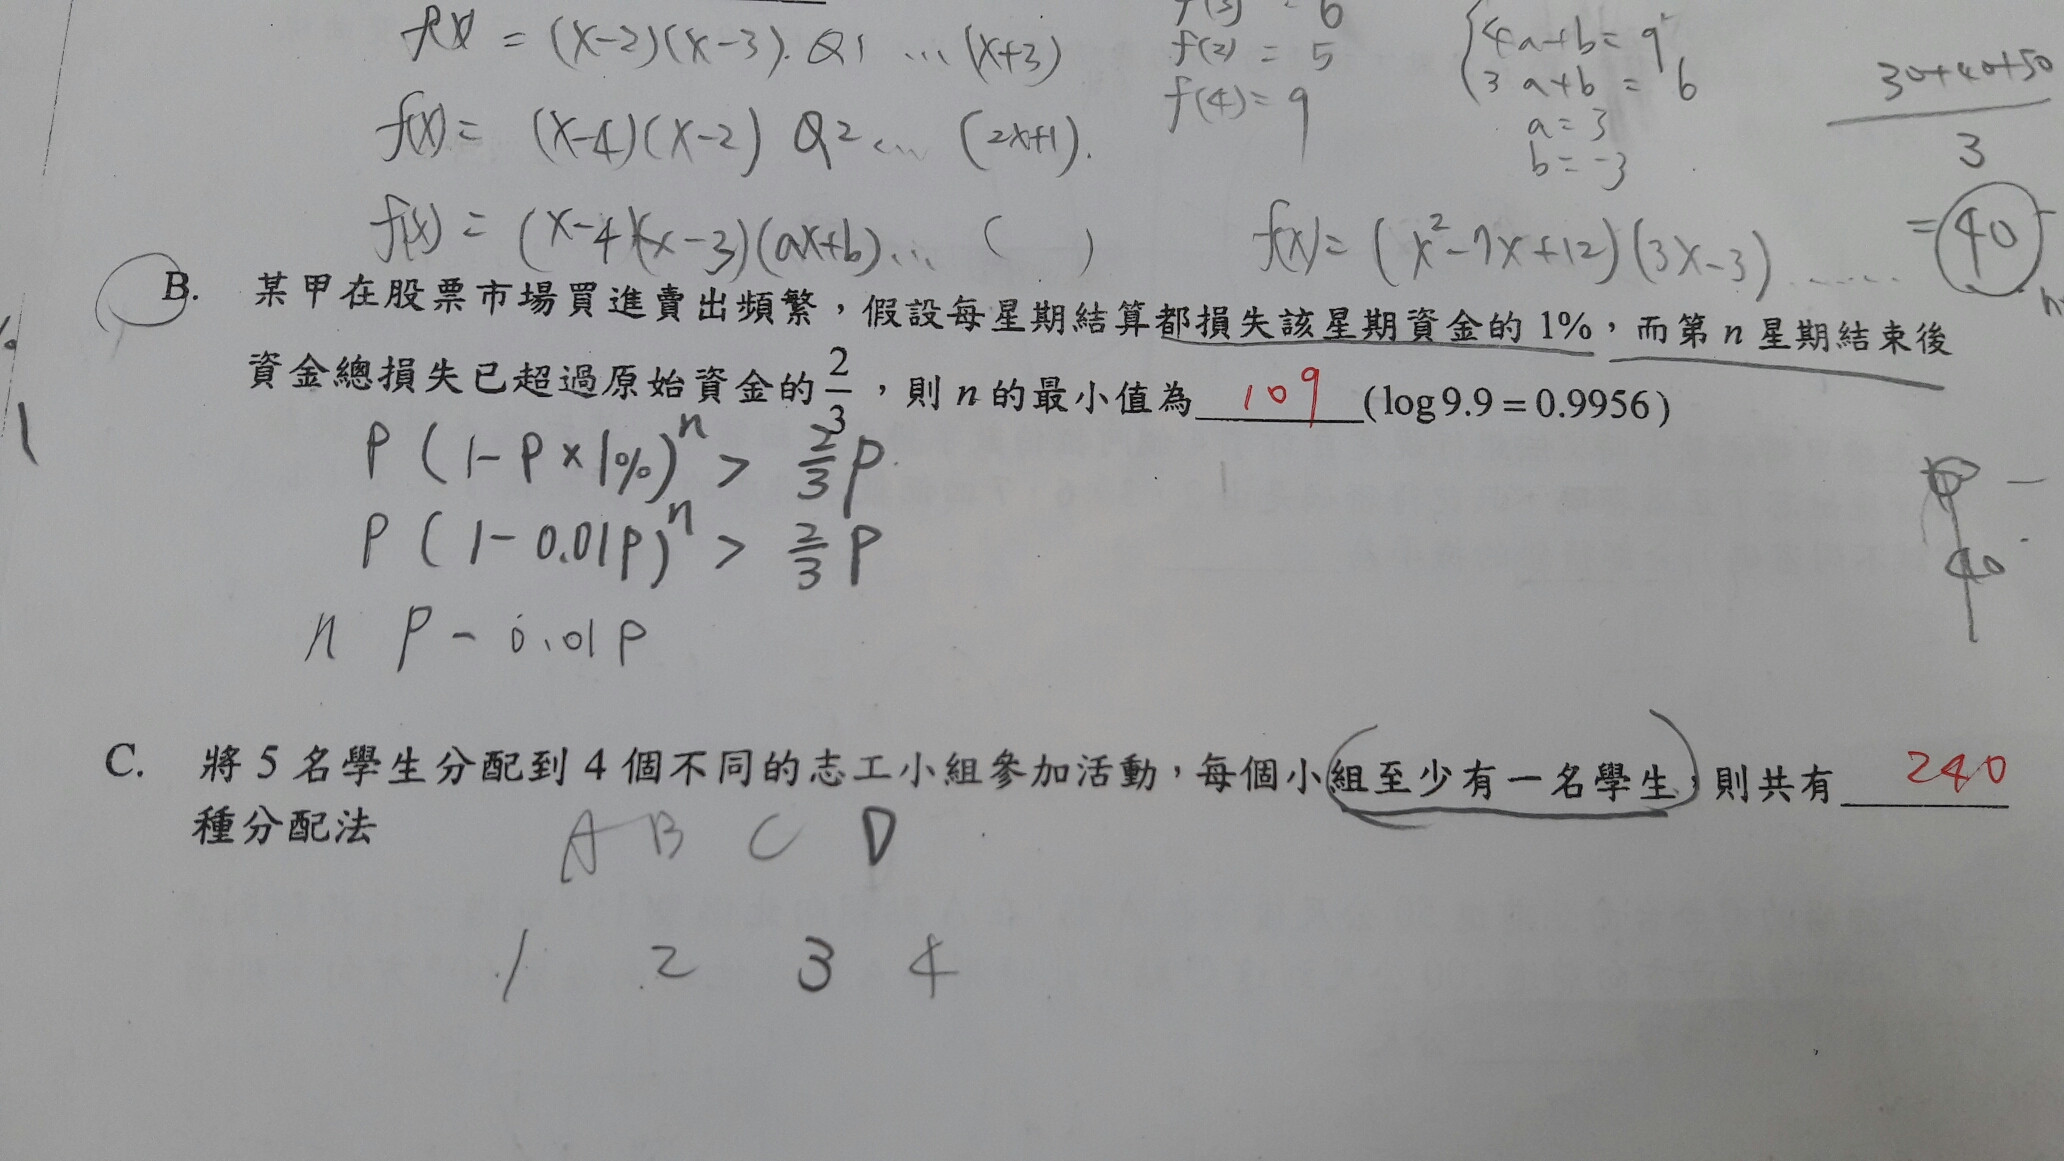 f(x) = (x-2)(x-3). Q1 ... (x+3)
f(3) = 6
f(2) = 5
f(4) = 9
4a+b = 9
3a+b = 6
a = 3
b = -3
30+40+50
3
= 40
f(x) = (x-4)(x-2) Q2 ... (2x+1).
f(x) = (x-4)(x-3)(ax+b)... ( )
f(x) = (x²-7x+12)(3x-3) ......
B. 某甲在股票市場買進賣出頻繁，假設每星期結算都損失該星期資金的 1%，而第 n 星期結束後
資金總損失已超過原始資金的 2/3，則 n 的最小值為 109 (log9.9 = 0.9956)
P (1-P×1%)ⁿ > 2/3 P.
P (1-0.01P)ⁿ > 2/3 P
n P - 0.01P
40
C. 將 5 名學生分配到 4 個不同的志工小組參加活動，每個小組至少有一名學生，則共有 240
種分配法
A B C D
1 2 3 4